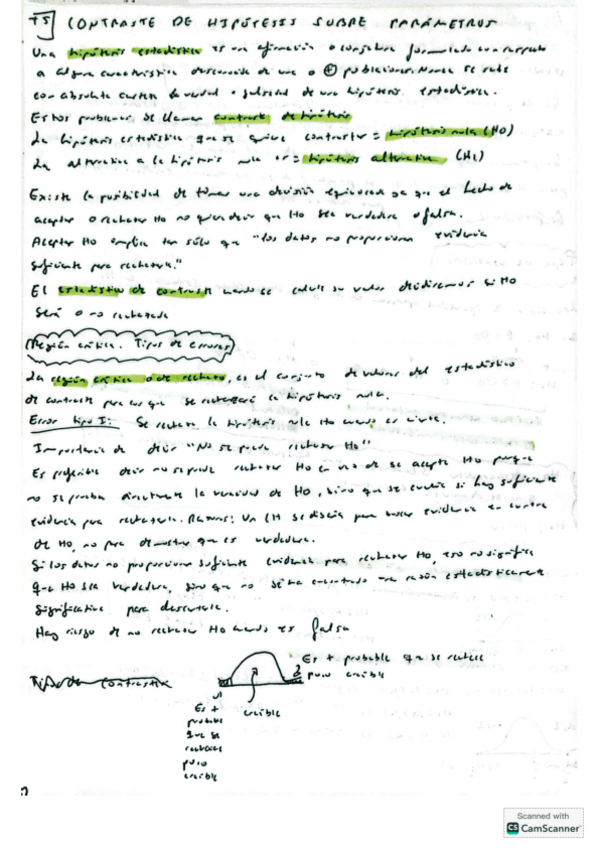 T5 CONTRASTE DE HIPÓTESIS SOBRE PARÁMETROS
Una hipótesis estadística es una afirmación o conjetura formulada con respecto
a alguna característica desconocida de una o ⊕ poblaciones. Nunca se sabe
con absoluta certeza la verdad o falsedad de una hipótesis estadística.
Estos problemas se llaman contraste de hipótesis
La hipótesis estadística que se quiere contrastar = hipótesis nula (H0)
La alternativa a la hipótesis nula es = hipótesis alternativa (H1)
Existe la posibilidad de tomar una decisión equivocada ya que el hecho de
aceptar o rechazar H0 no quiere decir que H0 sea verdadera o falsa.
Aceptar H0 implica tan sólo que "los datos no proporcionan evidencia
suficiente para rechazarla."
El estadístico de contraste cuando se calcule su valor decidiremos si H0
será o no rechazada
Región crítica. Tipos de errores
La región crítica o de rechazo, es el conjunto de valores del estadístico
de contraste para los que se rechazará la hipótesis nula.
Error tipo I: Se rechaza la hipótesis nula H0 cuando es cierta.
Importancia de decir "No se puede rechazar H0"
Es preferible decir no se puede rechazar H0 en vez de se acepta H0 porque
no se prueba directamente la veracidad de H0, sino que se evalúa si hay suficiente
evidencia para rechazarla. Razones: Un CH se diseña para buscar evidencia en contra
de H0, no para demostrar que es verdadera.
Si los datos no proporcionan suficiente evidencia para rechazar H0, eso no significa
que H0 sea verdadera, sino que no se ha encontrado una razón estadísticamente
significativa para descartarla.
Hay riesgo de no rechazar H0 cuando es falsa
Es + probable que se rechace
poco creíble
Tipos de contrastes
creíble
Es +
probable
que se
rechace
poco
creíble
Scanned with
CS CamScanner